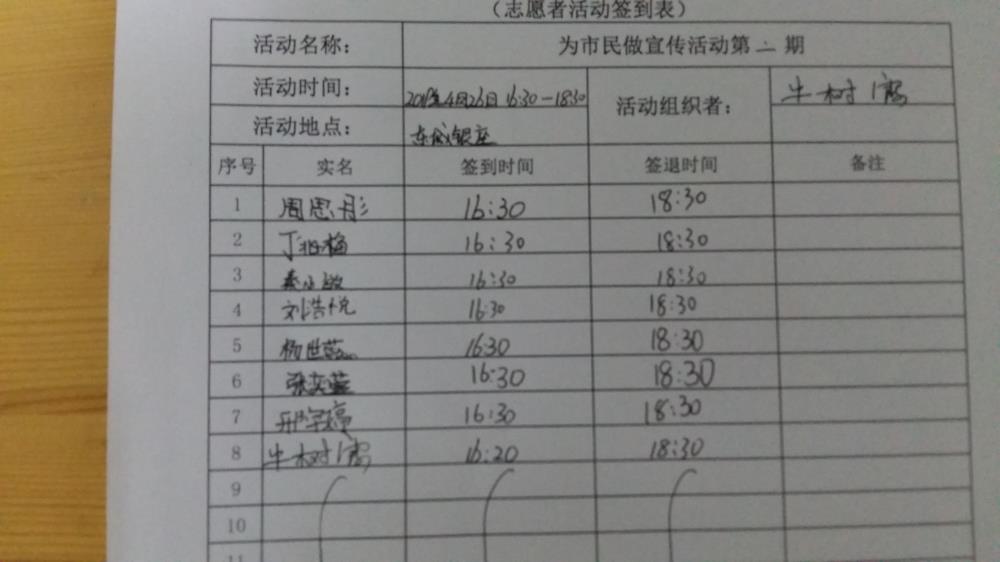 （志愿者活动签到表）
活动名称： 为市民做宣传活动第二期
活动时间： 4月26日 16:30-18:30 活动组织者： 牛树
活动地点： 东城银座
序号 实名 签到时间 签退时间 备注
1 周思彤 16:30 18:30
2 丁 梅 16:30 18:30
3 16:30 18:30
4 刘浩悦 16:30 18:30
5 杨世 16:30 18:30
6 张奕蓝 16:30 18:30
7 邢宇婷 16:30 18:30
8 牛树 16:20 18:30
9
10
11